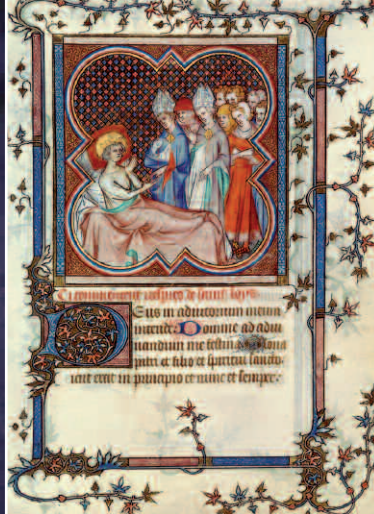 Ci commencent vespres de saint loys
Deus in adiutorium meum
intende. Domine ad adiu
uandum me festina. Gloria
patri et filio et spiritui sancto.
sicut erat in principio et nunc et semper.